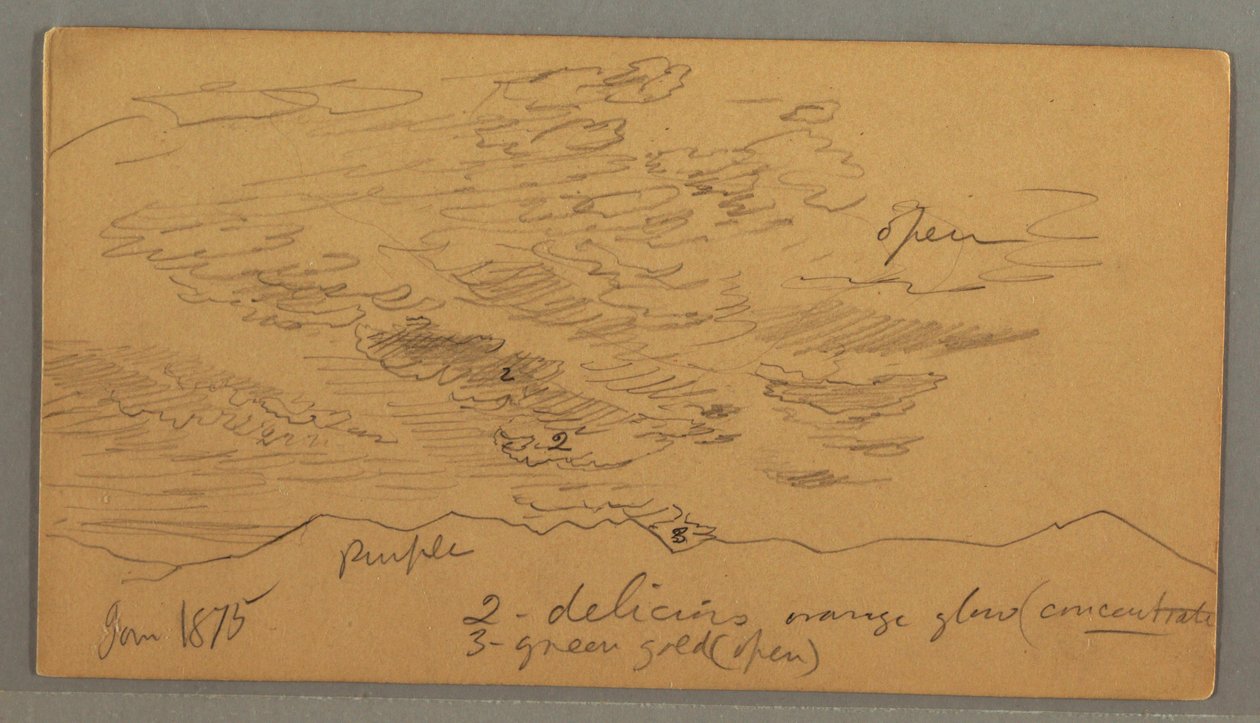 open
2
2
8
purple
Jan 1875
2 - delicious orange glow (concentrate
3 - green gold (open)